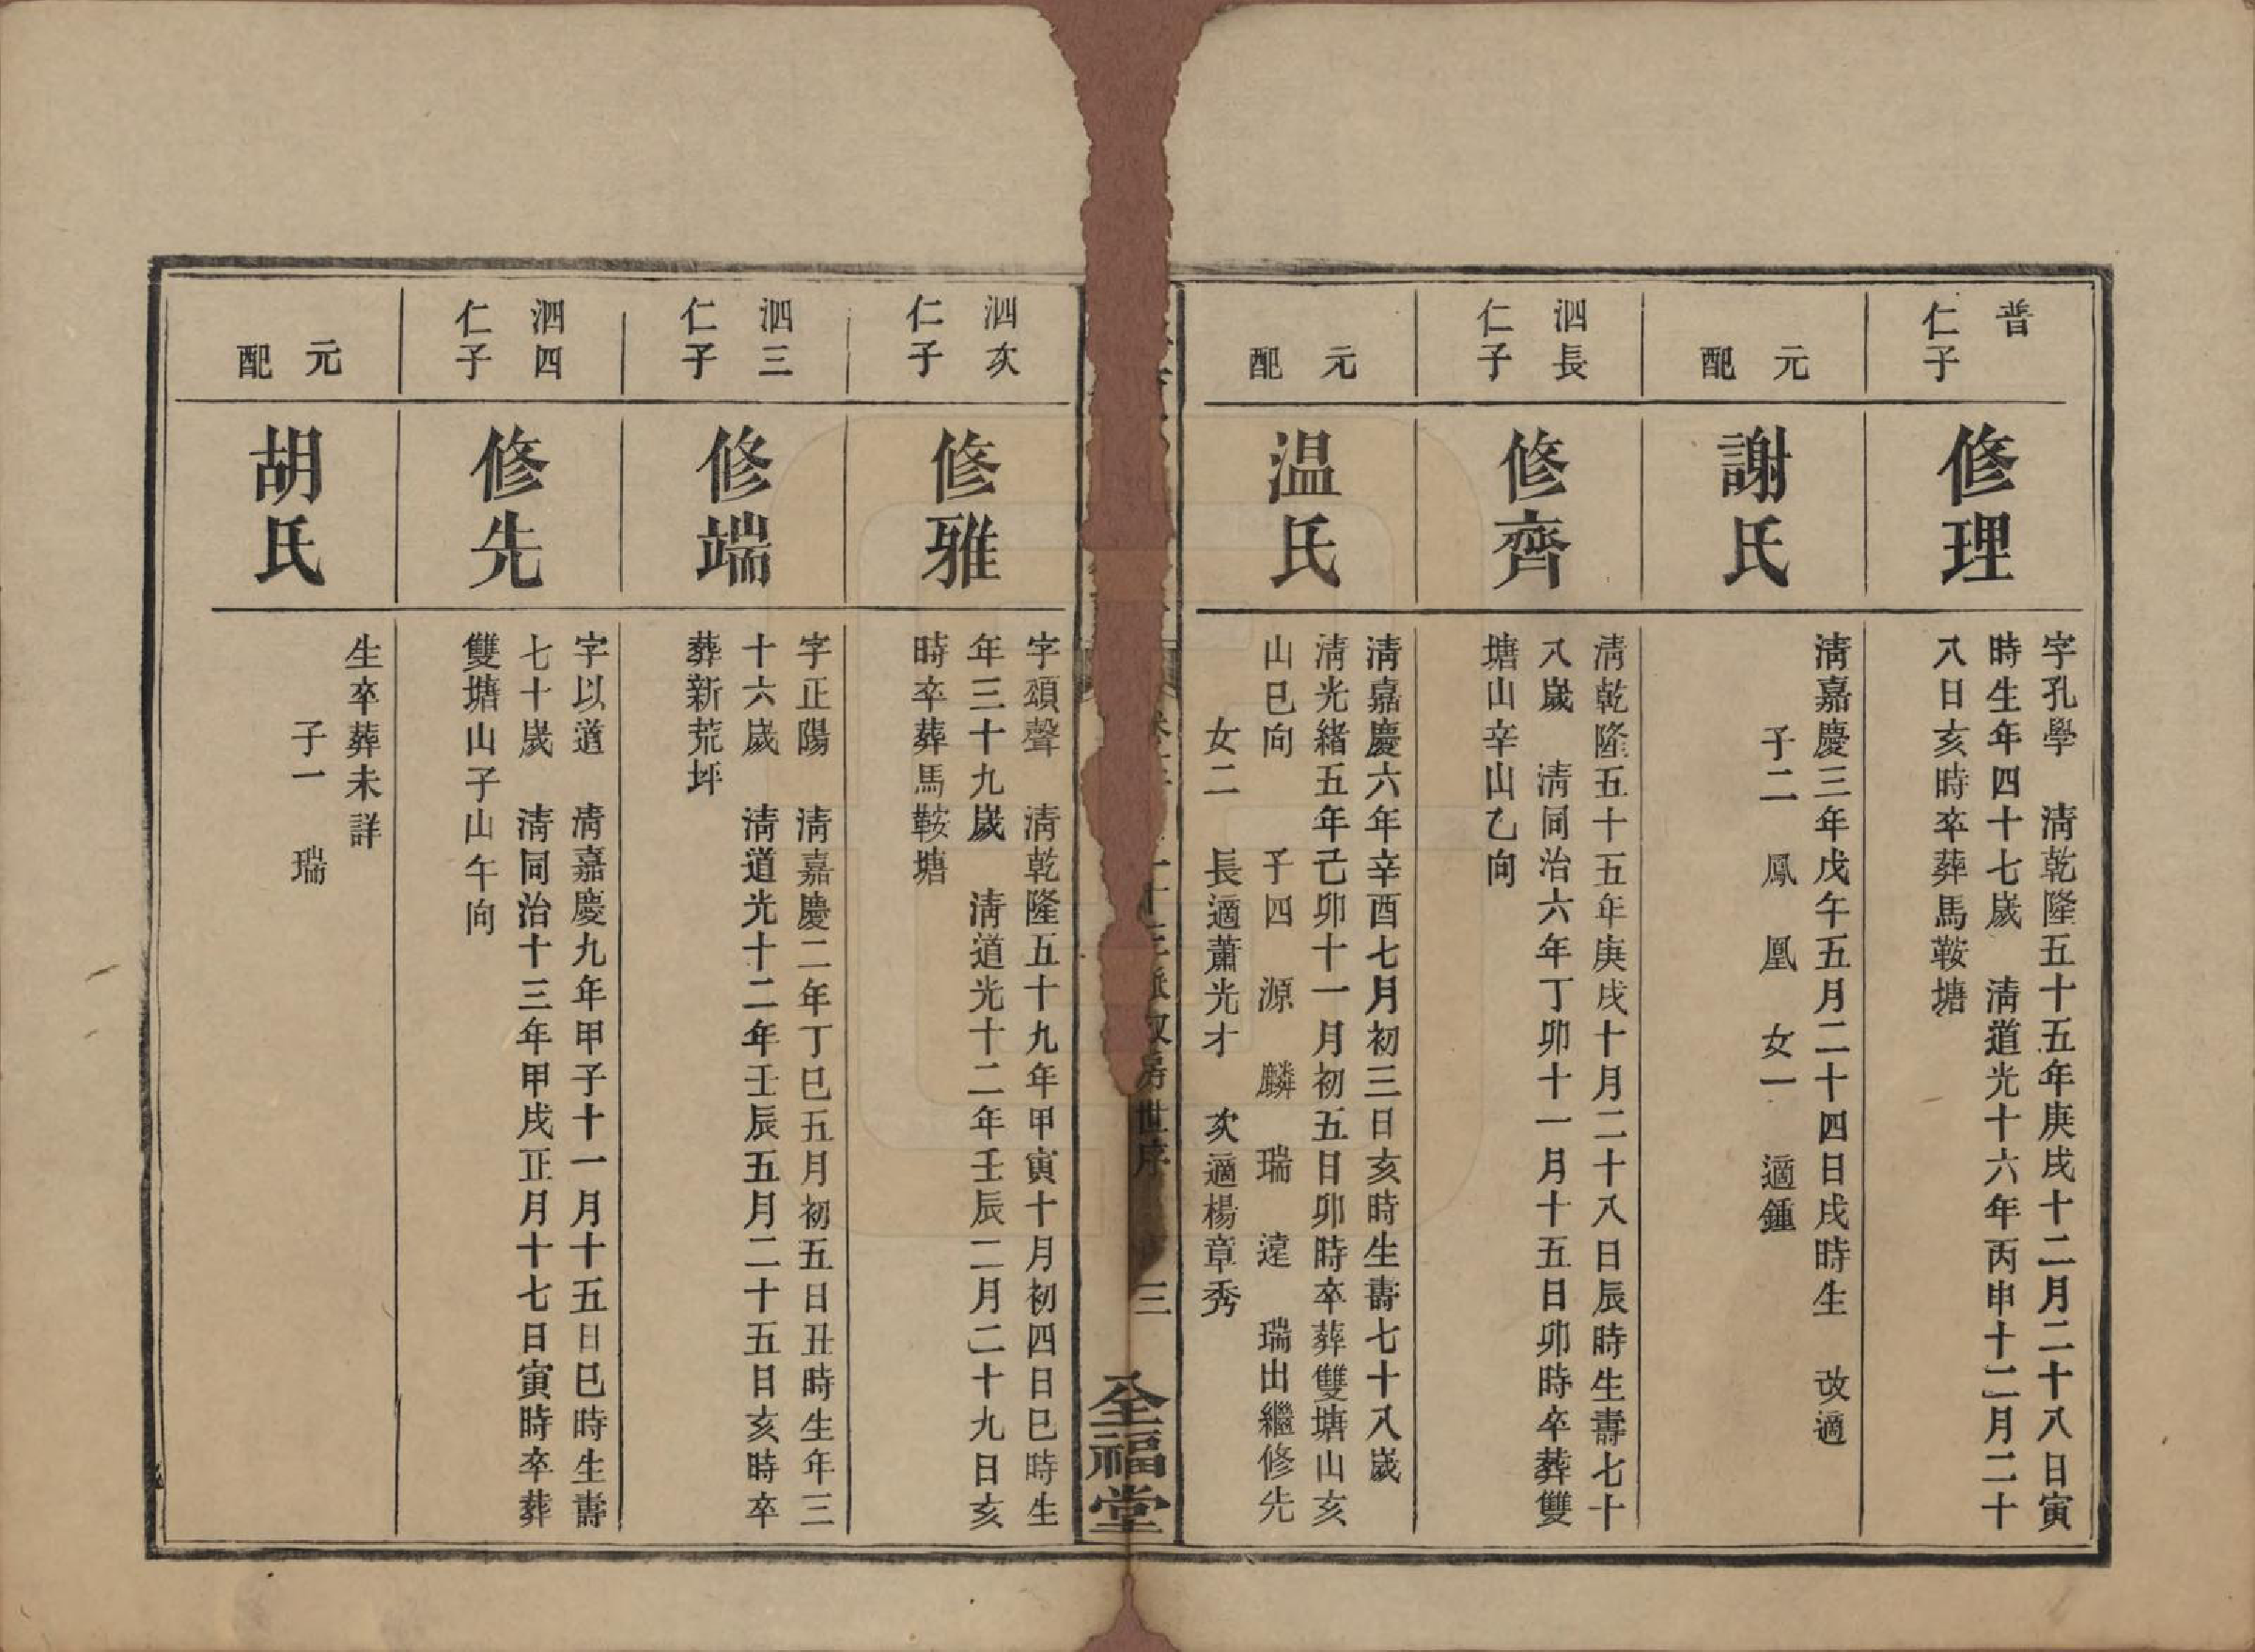 普
仁子
修理
字孔學　清乾隆五十五年庚戌十二月二十八日寅
時生年四十七歲　清道光十六年丙申十二月二十
八日亥時卒葬馬鞍塘
元
配
謝氏
清嘉慶三年戊午五月二十四日戌時生　改適
子二　鳳　凰　女一　適鍾
泗長
仁子
修齊
清乾隆五十五年庚戌十月二十八日辰時生壽七十
八歲　清同治六年丁卯十一月十五日卯時卒葬雙
塘山辛山乙向
元
配
温氏
清嘉慶六年辛酉七月初三日亥時生壽七十八歲
清光緒五年己卯十一月初五日卯時卒葬雙塘山亥
山巳向　子四　源　麟　瑞　達　瑞出繼修先
女二　長適蕭光才　次適楊章秀
房世序
三
全福堂
泗次
仁子
修雅
字頌聲　清乾隆五十九年甲寅十月初四日巳時生
年三十九歲　清道光十二年壬辰二月二十九日亥
時卒葬馬鞍塘
泗三
仁子
修端
字正陽　清嘉慶二年丁巳五月初五日丑時生年三
十六歲　清道光十二年壬辰五月二十五日亥時卒
葬新荒坪
泗四
仁子
修先
字以道　清嘉慶九年甲子十一月十五日巳時生壽
七十歲　清同治十三年甲戌正月十七日寅時卒葬
雙塘山子山午向
元
配
胡氏
生卒葬未詳
子一　瑞